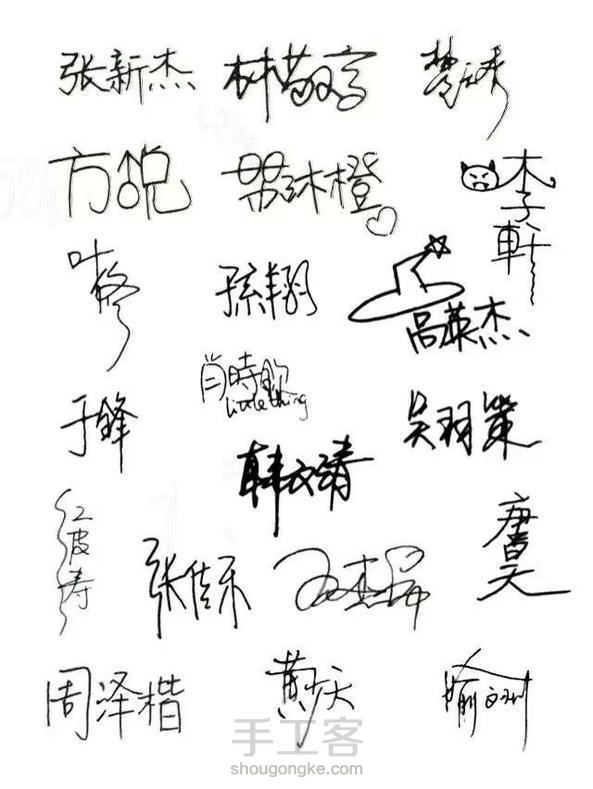 张新杰 林敬言 楚云秀
方锐 苏沐橙 李軒
叶修 孫翔 高英杰
肖時钦
little thing
于锋 韩文清 吴羽策
江波涛 张佳乐 王杰希 唐昊
周泽楷 黄少天 喻文州
手工客
shougongke.com